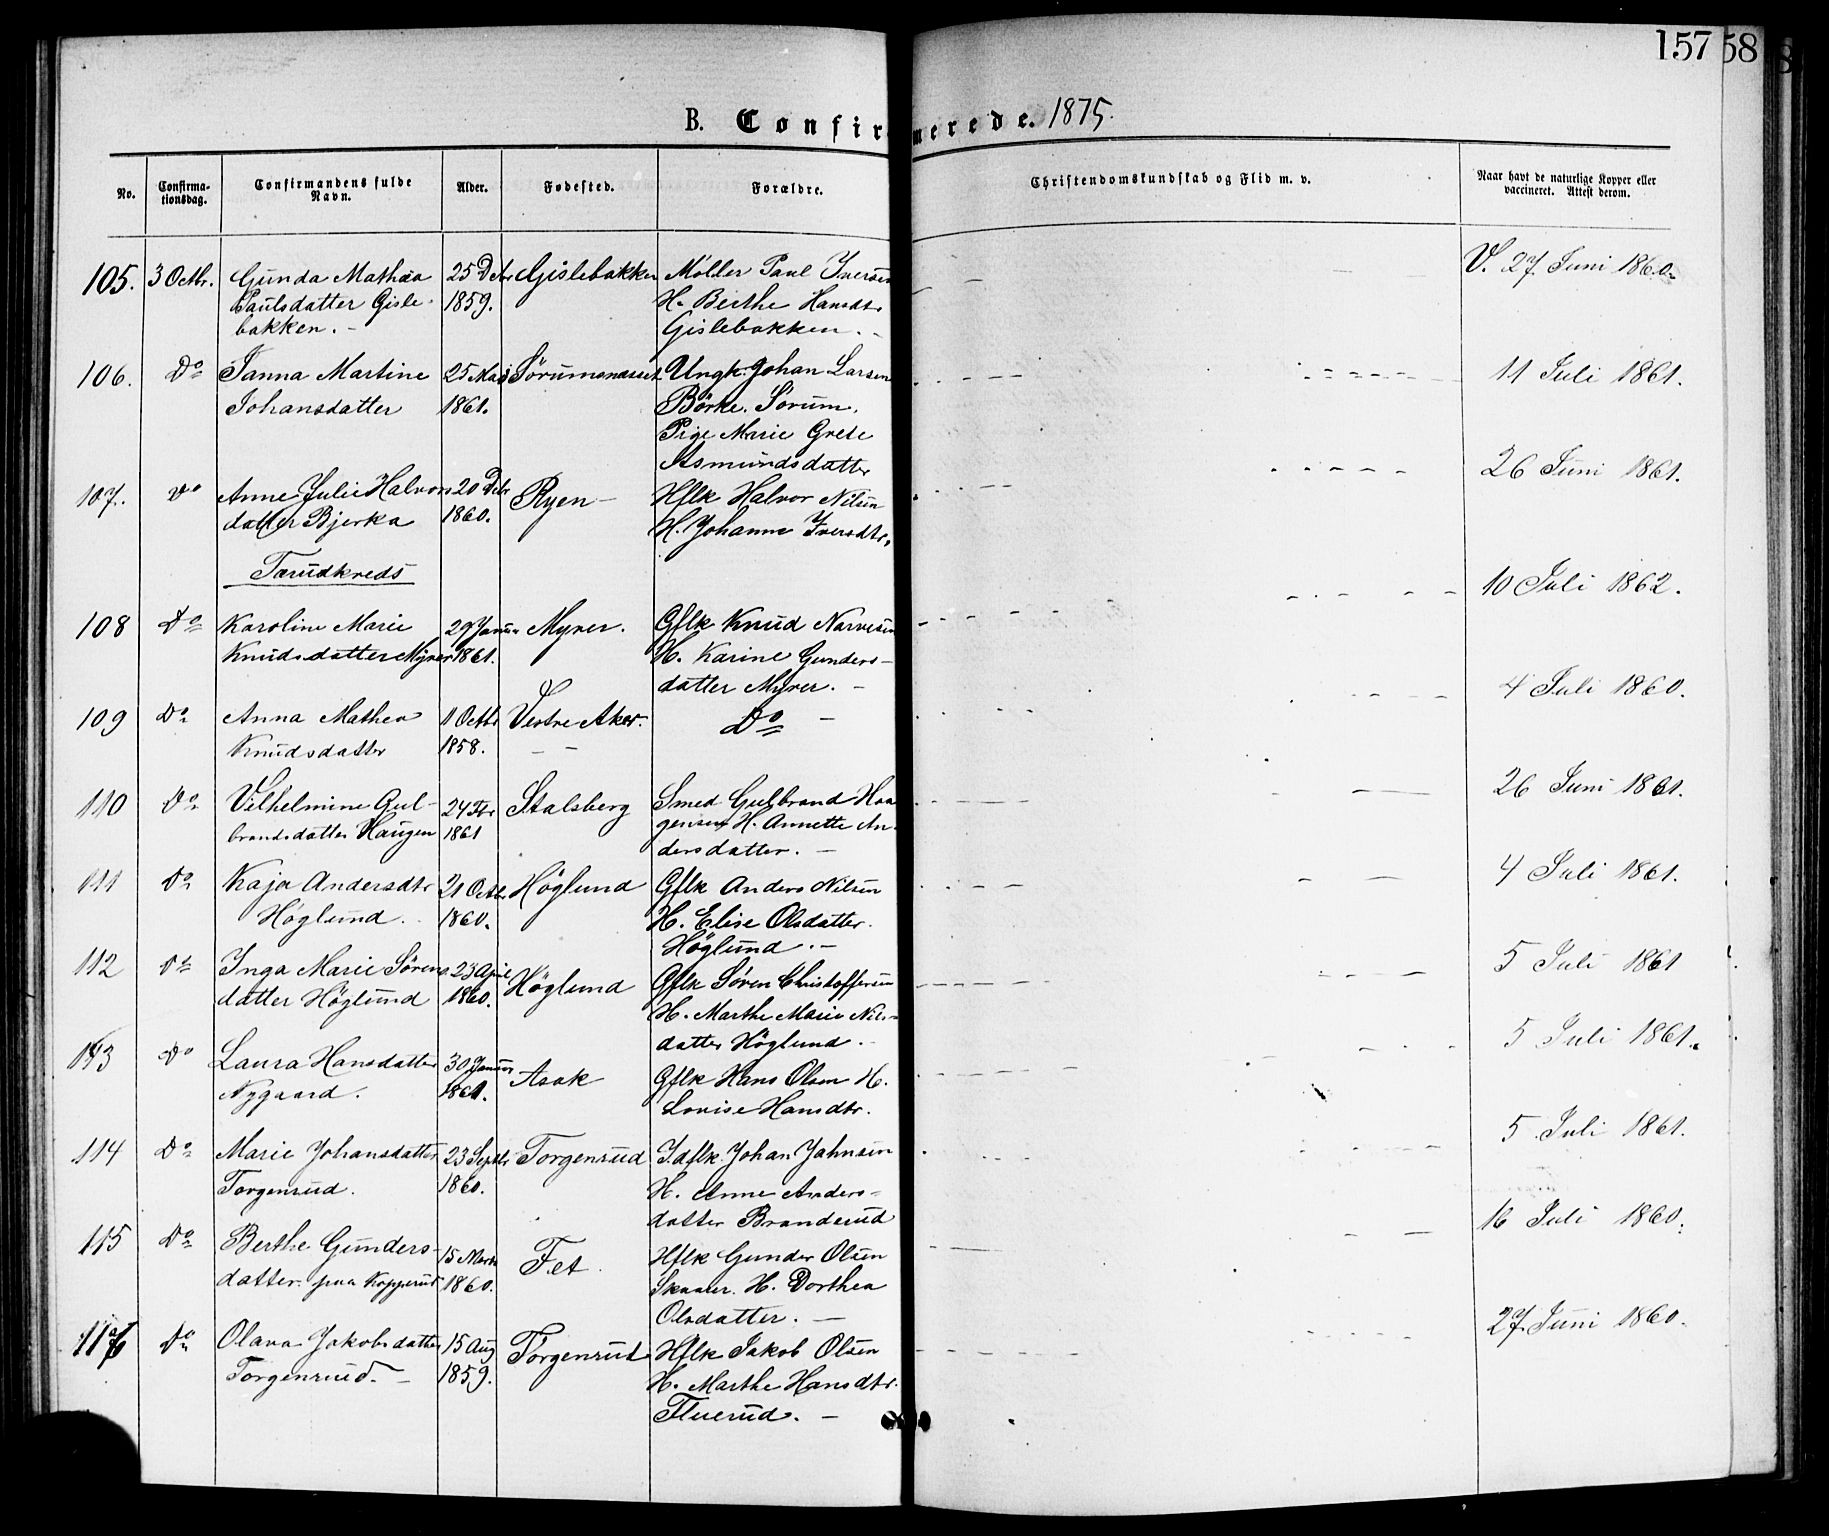 157 58 8
B. Confirmerede. 1875.
No. Confirma-tionsdag. Confirmandens fulde Navn. Alder. Fødested. Forældre. Christendomskundskab og Flid m. v. Naar havt de naturlige Kopper eller vaccineret. Attest derom.
105. 3 Octbr. Gunda Mathea 25 Dcbr Gislebakken Møller Paul Iversen V. 27 Juni 1860.
Paulsdatter Gisle- 1859. H. Berthe Hansdtr
bakken. - Gislebakken. -
106. Do Janna Martine 25 Mai Sørumsnæset Ungk. Johan Larsen 11 Juli 1861.
Johansdatter 1861. Børke. Sørum.
Pige Marie Grete
Asmundsdatter
107. Do Anne Julie Halvors 20 Dcbr Ryen - Hflk Halvor Nilsen 26 Juni 1861.
datter Bjerka 1860. H. Johanne Iversdtr.
Tærudkreds
108 Do Karoline Marie 29 Januar Myrer. Gflk Knud Narvesen 10 Juli 1862.
Knudsdatter Myrer 1861. H. Karine Gunders-
datter Myrer. -
109 Do Anna Mathea 11 Octbr Vestre Aker. Do - 4 Juli 1860.
Knudsdatter 1858. - -
110 Do Vilhelmine Gul- 24 Fbr Stalsberg Smed Gulbrand Haa 26 Juni 1861.
brandsdatter Haugen 1861 gensen H. Annette An-
dersdatter. -
111 Do Kaja Andersdtr 21 Octbr Höglund Gflk Anders Nilsen 4 Juli 1861.
Höglund. 1860. H. Elise Olsdatter.
Höglund. -
112 Do Inga Marie Sørens 23 April Höglund Gflk Søren Christoffersen 5 Juli 1861
datter Höglund 1860. H. Marthe Marie Nils-
datter Höglund. -
113 Do Laura Hansdatter 30 Januar Asak Gflk Hans Olsen H. 5 Juli 1861.
Nygaard. 1861. Lovise Hansdtr.
114 Do Marie Johansdatter 23 Septbr Torgenrud Johan Jahnsen 5 Juli 1861.
Torgenrud. 1860. H. Anne Anders-
datter Branderud
115 Do Berthe Gunders- 15 Marts Fet. Hflk Gunder Olsen 16 Juli 1860.
datter paa Kopperud 1860. Skaaler. H. Dorthea
Olsdatter. -
116 Do Olava Jakobsdatter 15 Aug Torgenrud Hflk Jakob Olsen 27 Juni 1860.
Torgenrud. - 1859. H. Marthe Hansdtr.
Fluerud. -